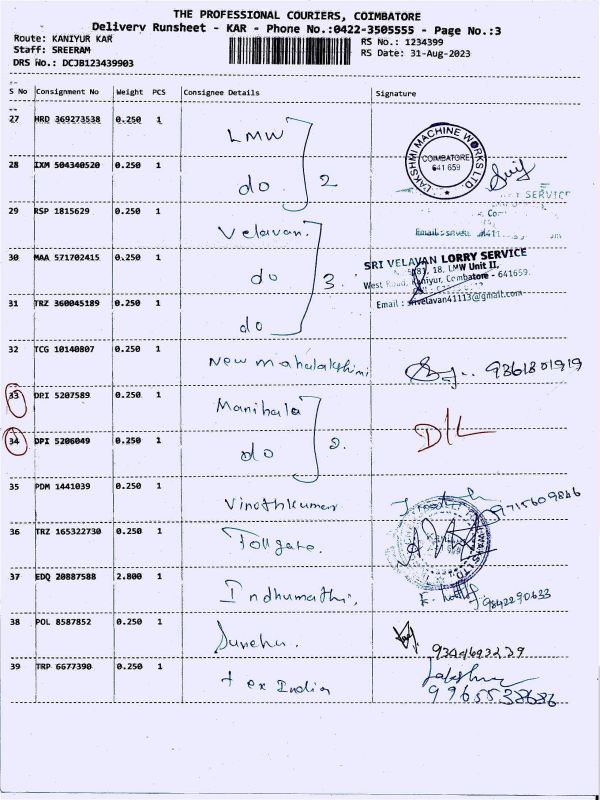 THE PROFESSIONAL COURIERS, COIMBATORE
Delivery Runsheet - KAR - Phone No.:0422-3505555 - Page No.:3
Route: KANIYUR KAR
RS No.: 1234399
Staff: SREERAM
RS Date: 31-Aug-2023
DRS No.: DCJB123439903
S No Consignment No Weight PCS Consignee Details Signature
27 HRD 369273538 0.250 1 LMW
LAKSHMI MACHINE WORKS LTD.
COIMBATORE
641 659
28 IXM 504340520 0.250 1 do 2
SERVICE
29 RSP 1815629 0.250 1 Velavan.
Email:
30 MAA 571702415 0.250 1 do 3.
SRI VELAVAN LORRY SERVICE
18, LMW Unit II,
West Road, Kaniyur, Coimbatore - 641659.
Email : srivelavan41113@gmail.com
31 TRZ 360045189 0.250 1 do
32 TCG 10140807 0.250 1 New mahalakshmi 9361801919
33 DRI 5207589 0.250 1 Manibala
34 DPI 5206049 0.250 1 do 2. D/L
35 PDM 1441039 0.250 1 Vinothkumar 9715609846
36 TRZ 165322730 0.250 1 Tollgate.
37 EDQ 20887588 2.800 1 Indhumathi, 9842290633
38 POL 8587852 0.250 1 9344693239
39 TRP 6677390 0.250 1 tex India 9965538686